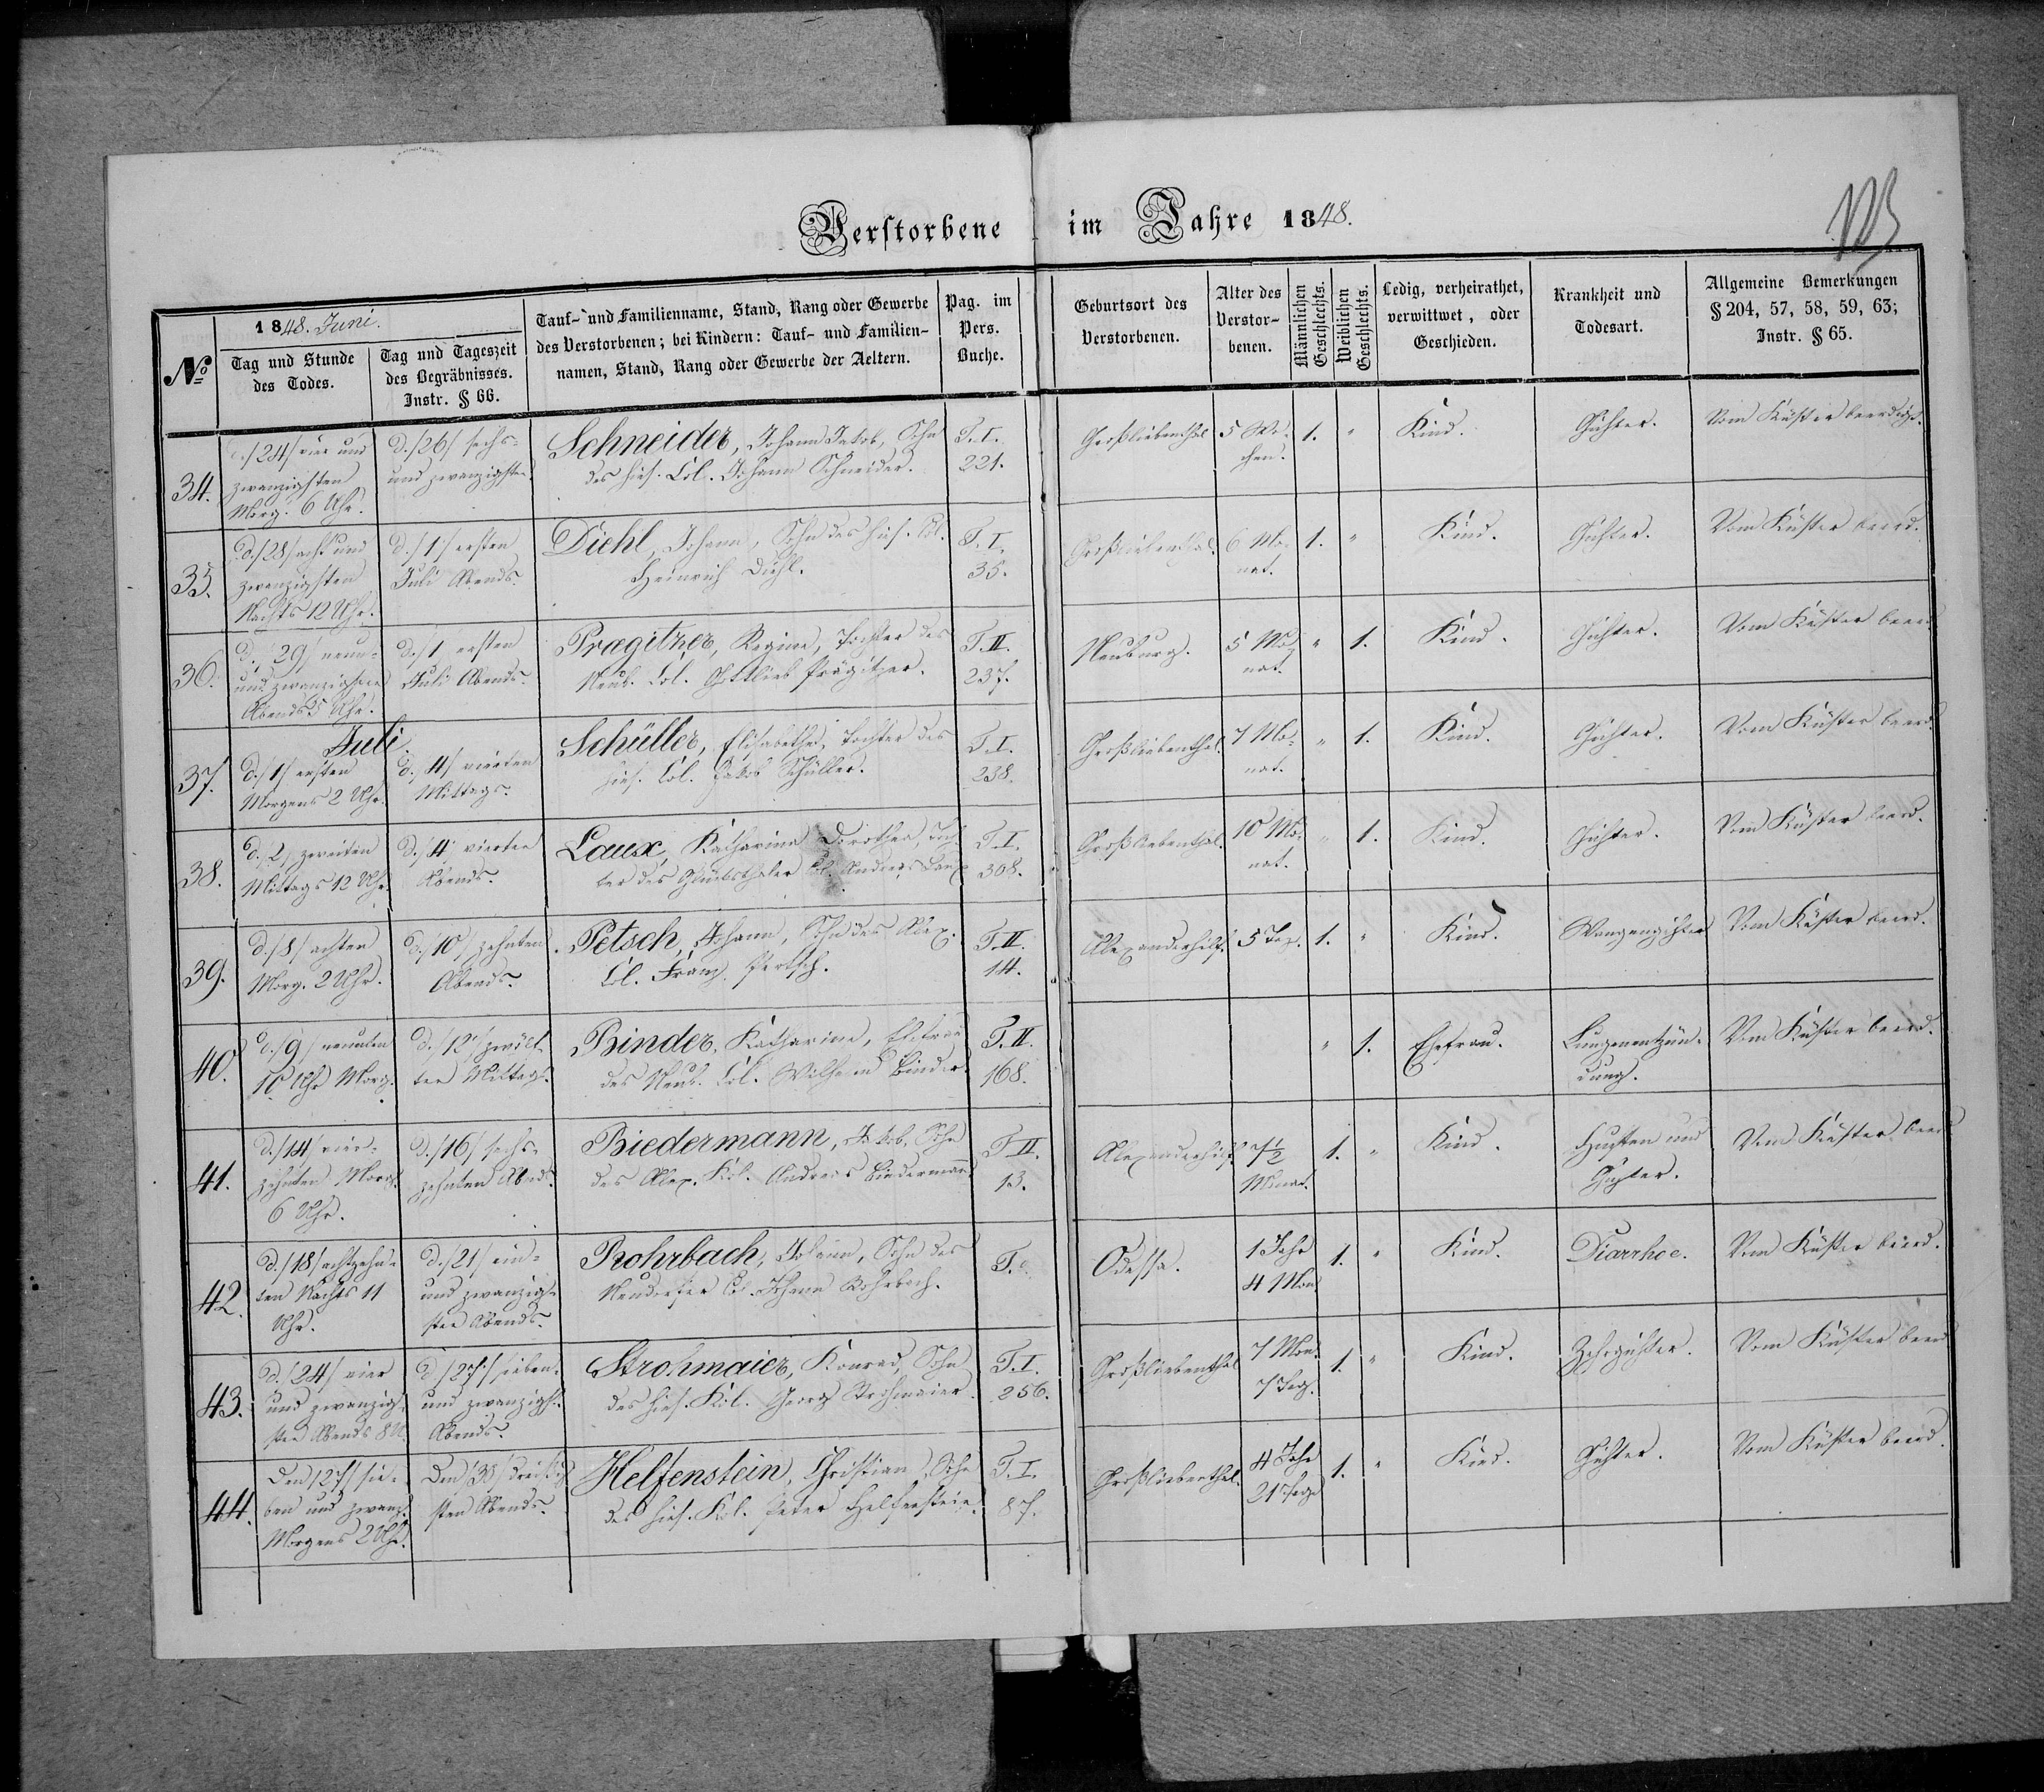 Verstorbene im Jahre 1848.
1848. Juni.
№
Tag und Stunde
des Todes.
Tag und Tageszeit
des Begräbnisses.
Instr. § 66.
Tauf- und Familienname, Stand, Rang oder Gewerbe
des Verstorbenen; bei Kindern: Tauf- und Familien-
namen, Stand, Rang oder Gewerbe der Aeltern.
Pag. im
Pers.
Buche.
Geburtsort des
Verstorbenen.
Alter des
Verstor-
benen.
Männlichen
Geschlechts.
Weiblichen
Geschlechts.
Ledig, verheirathet,
verwittwet, oder
Geschieden.
Krankheit und
Todesart.
Allgemeine Bemerkungen
§ 204, 57, 58, 59, 63;
Instr. § 65.
34.
d. /24/ vier und
zwanzigsten
Morg. 6 Uhr.
d. /26/ sechs-
und zwanzigsten.
Schneider, Johann Jakob, Sohn
des hies. Col. Johann Schneider.
T. I.
221.
Großliebenthal
5 Wo-
chen.
1.
"
Kind.
Gichter.
Vom Küster beerdigt.
35.
d. /28/ acht und
zwanzigsten
Nachts 12 Uhr.
d. /1/ ersten
Juli Abends
Diehl, Johann, Sohn des hies. Col.
Heinrich Diehl.
T. I.
35.
Großliebenthal.
6 Mo-
nat.
1.
"
Kind.
Gichter.
Vom Küster beerd.
36.
d. /29/ neun-
und zwanzigsten
Abends 5 Uhr.
d. /1/ ersten
Juli Abends.
Pragitzer, Regina, Tochter des
Neub. Col. Gottlieb Prägitzer.
T. II.
237.
Neuburg.
5 Mo-
nat.
"
1.
Kind.
Gichter.
Vom Küster beerd.
Juli.
37.
d. /1/ ersten
Morgens 2 Uhr.
d. /4/ vierten
Mittags.
Schüller, Elisabetha, Tochter des
hies. Col. Jakob Schüller.
T. I.
238.
Großliebenthal.
7 Mo-
nat.
"
1.
Kind.
Gichter.
Vom Küster beerd.
38.
d. /2/ zweiten
Mittags 12 Uhr
d. /4/ vierten
Abends.
Laux, Katharina Dorothea, Toch-
ter des Glücksthaler Col. Andreas Laux
T. I.
308.
Großliebenthal.
10 Mo-
nat.
"
1.
Kind.
Gichter.
Vom Küster beerd.
39.
d. /8/ achten
Morg. 2 Uhr.
d. /10/ zehnten
Abends.
Petsch, Johann, Sohn des Alex.
Col. Franz Pertsch.
T. II.
14.
Alexanderhilf.
5 Tag.
1.
"
Kind.
Vom Küster beerd.
40.
d. /9/ neunten
10 Uhr Morg.
d. /12/ zwölf-
ten Mittags.
Binder, Katharina, Ehefrau
des Neub. Col. Wilhelm Binder.
T. II.
168.
"
1.
Ehefrau.
Lungenentzün-
dung.
Vom Küster beerd.
41.
d. /14/ vier-
zehnten Morg.
6 Uhr.
d. /16/ sechs-
zehnten Abends.
Biedermann, Jakob, Sohn
des Alex. Kol. Andreas Biedermann
T. II.
13.
Alexanderhilf
7 1/2
Monat.
1.
"
Kind.
Husten und
Gichter.
Vom Küster beerd
42.
d. /18/ achtzehn-
ten Nachts 11
Uhr.
d. /21/ ein-
und zwanzig-
sten Abends.
Rohrbach, Johann, Sohn des
Neudorfer Col. Johann Rohrbach.
T.
Odessa.
1 Jahr
4 Mon.
1.
"
Kind.
Diarrhoe.
Vom Küster beerd.
43.
d. /24/ vier
und zwanzig-
sten Abends 8 U.
d. /27/ sieben-
und zwanzigst.
Abends.
Strohmaier, Konrad, Sohn
des hies. Kol. Georg Strohmaier.
T. I.
256.
Großliebenthal
7 Mon.
7 Tag.
1.
"
Kind.
Vom Küster beerd
44.
Den /27/ sie-
ben und zwanz.
Morgens 2 Uhr.
Den /30/ dreißig-
sten Abends.
Helfenstein, Christian, Sohn
des hies. Kol. Peter Helfenstein.
T. I.
87.
Großliebenthal.
4 Jahr
21 Tage
1.
"
Kind.
Gichter.
Vom Küster beerd.